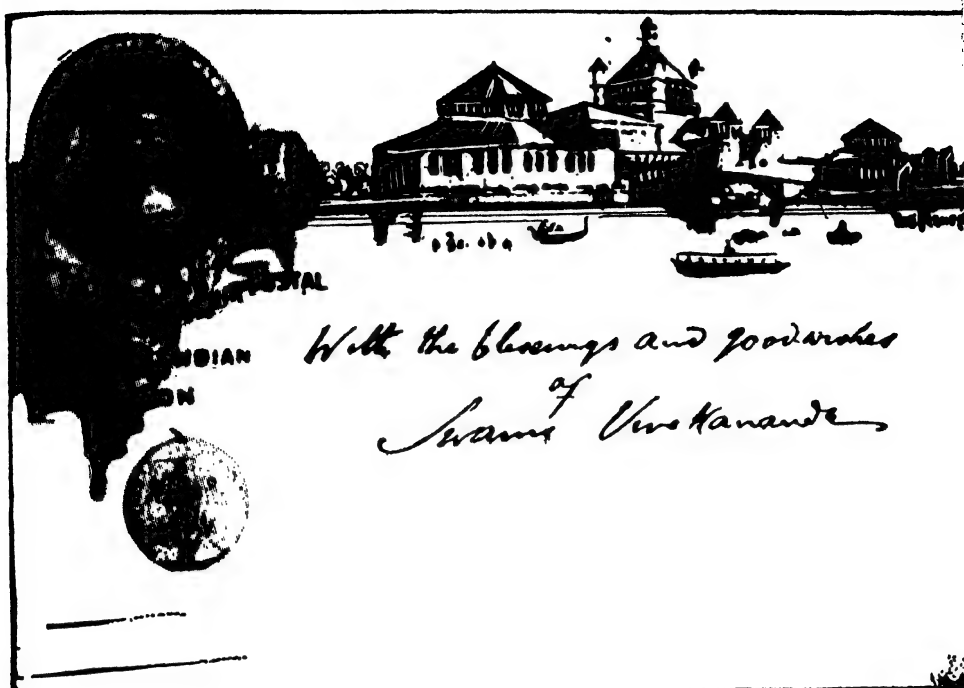 POSTAL
With the blessings and goodwishes
of
Swami Vivekananda